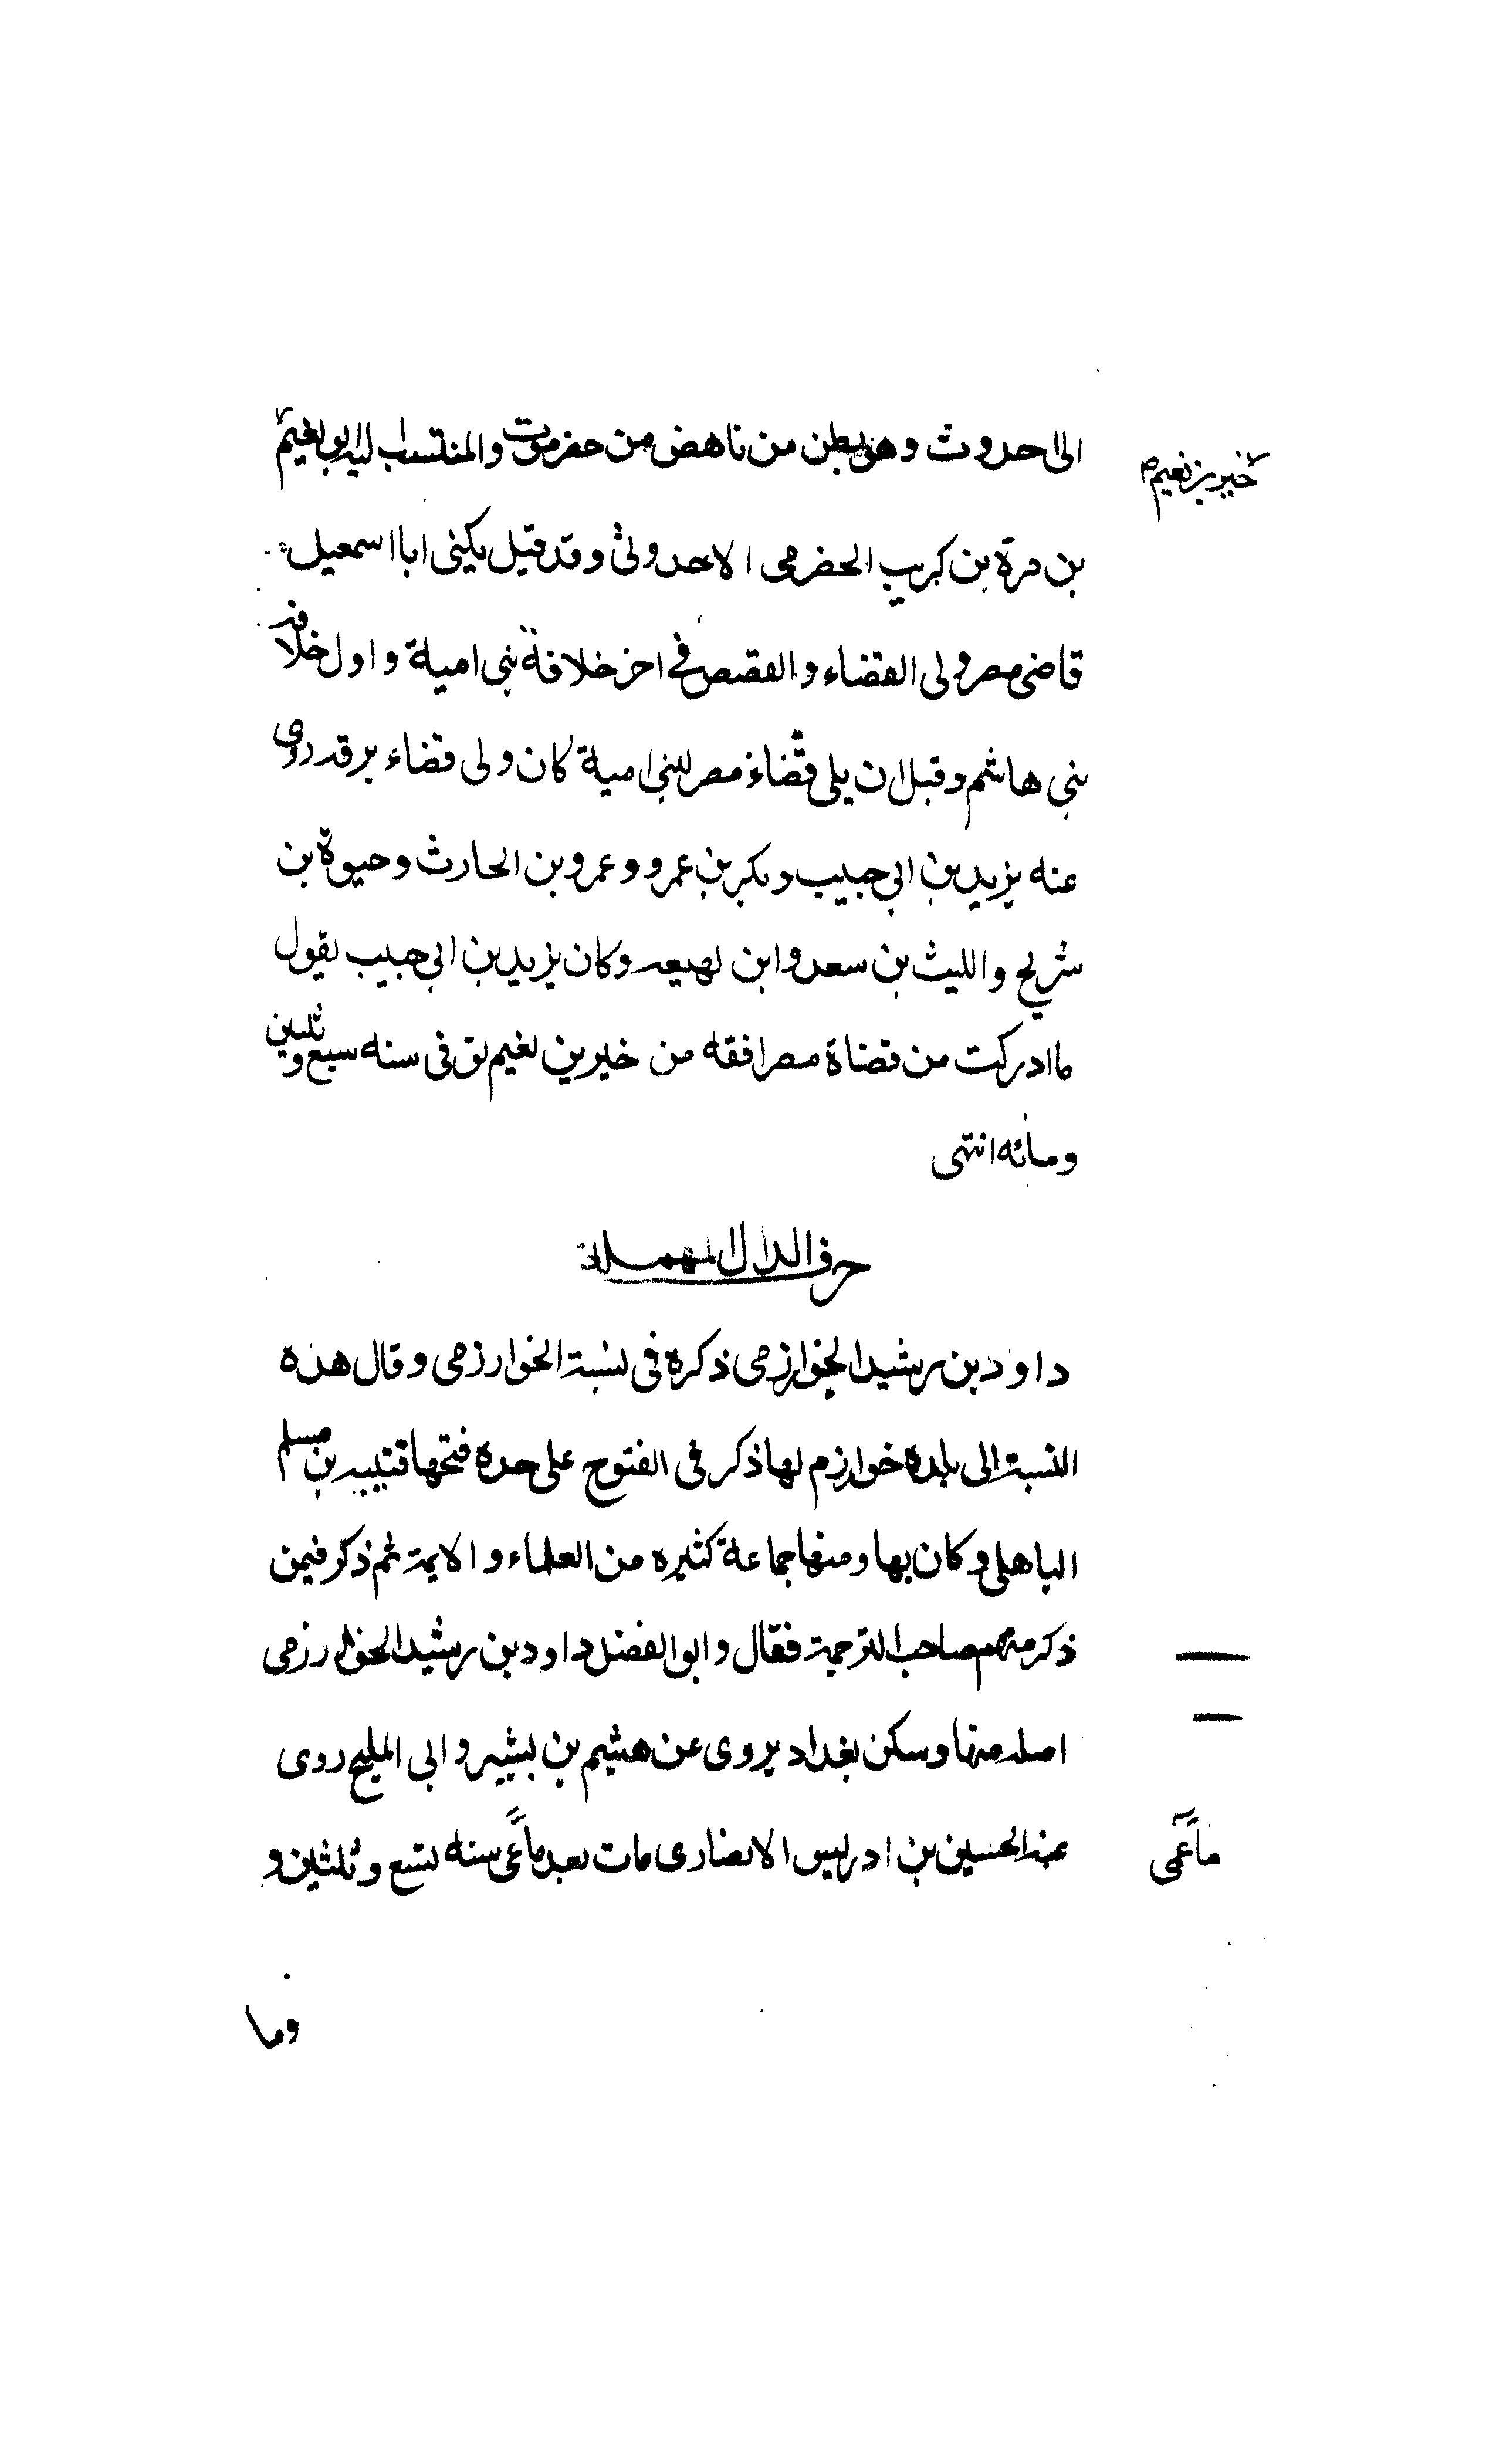 الى احدوث وهو بطن من ناهض من حضرموت والمنتسب اليه ابو نعيم
خير بن نعيم
بن مرة بن كريب الحضرمى الاحدوثى وقد قيل يكنى ابا اسمعيل
قاضى مصر ولى القضاء والقصص فى اخر خلافة بنى امية واول خلافة
بنى هاشم وقبل ان يلى قضاء مصر لبنى امية كان ولى قضاء برقه روى
عنه يزيد بن ابى حبيب وبكر بن عمرو وعمرو بن الحارث وحيوة بن
شريح والليث بن سعد وابن لهيعه وكان يزيد بن ابى حبيب يقول
ما ادركت من قضاة مصر افقه من خير بن نعيم توفى سنه سبع وثلثين
ومائه انتهى
حرف الدال المهملة
داود بن رشيد الخوارزمى ذكره فى نسبة الخوارزمى وقال هذه
النسبة الى بلده خوارزم لها ذكر فى الفتوح على حده فتحها قتيبه بن مسلم
الباهلى وكان بها ومنها جماعة كثيره من العلماء والايمة ثم ذكر فيمن
ذكر منهم صاحب الترجمة فقال وابو الفضل داود بن رشيد الخوارزمى
اصله منها وسكن بغداد يروى عن هشيم بن بشير وابى المليح روى
عنه الحسين بن ادريس الانصارى مات بعد ما عمى سنه تسع وثلثين و
ما عمى
وما